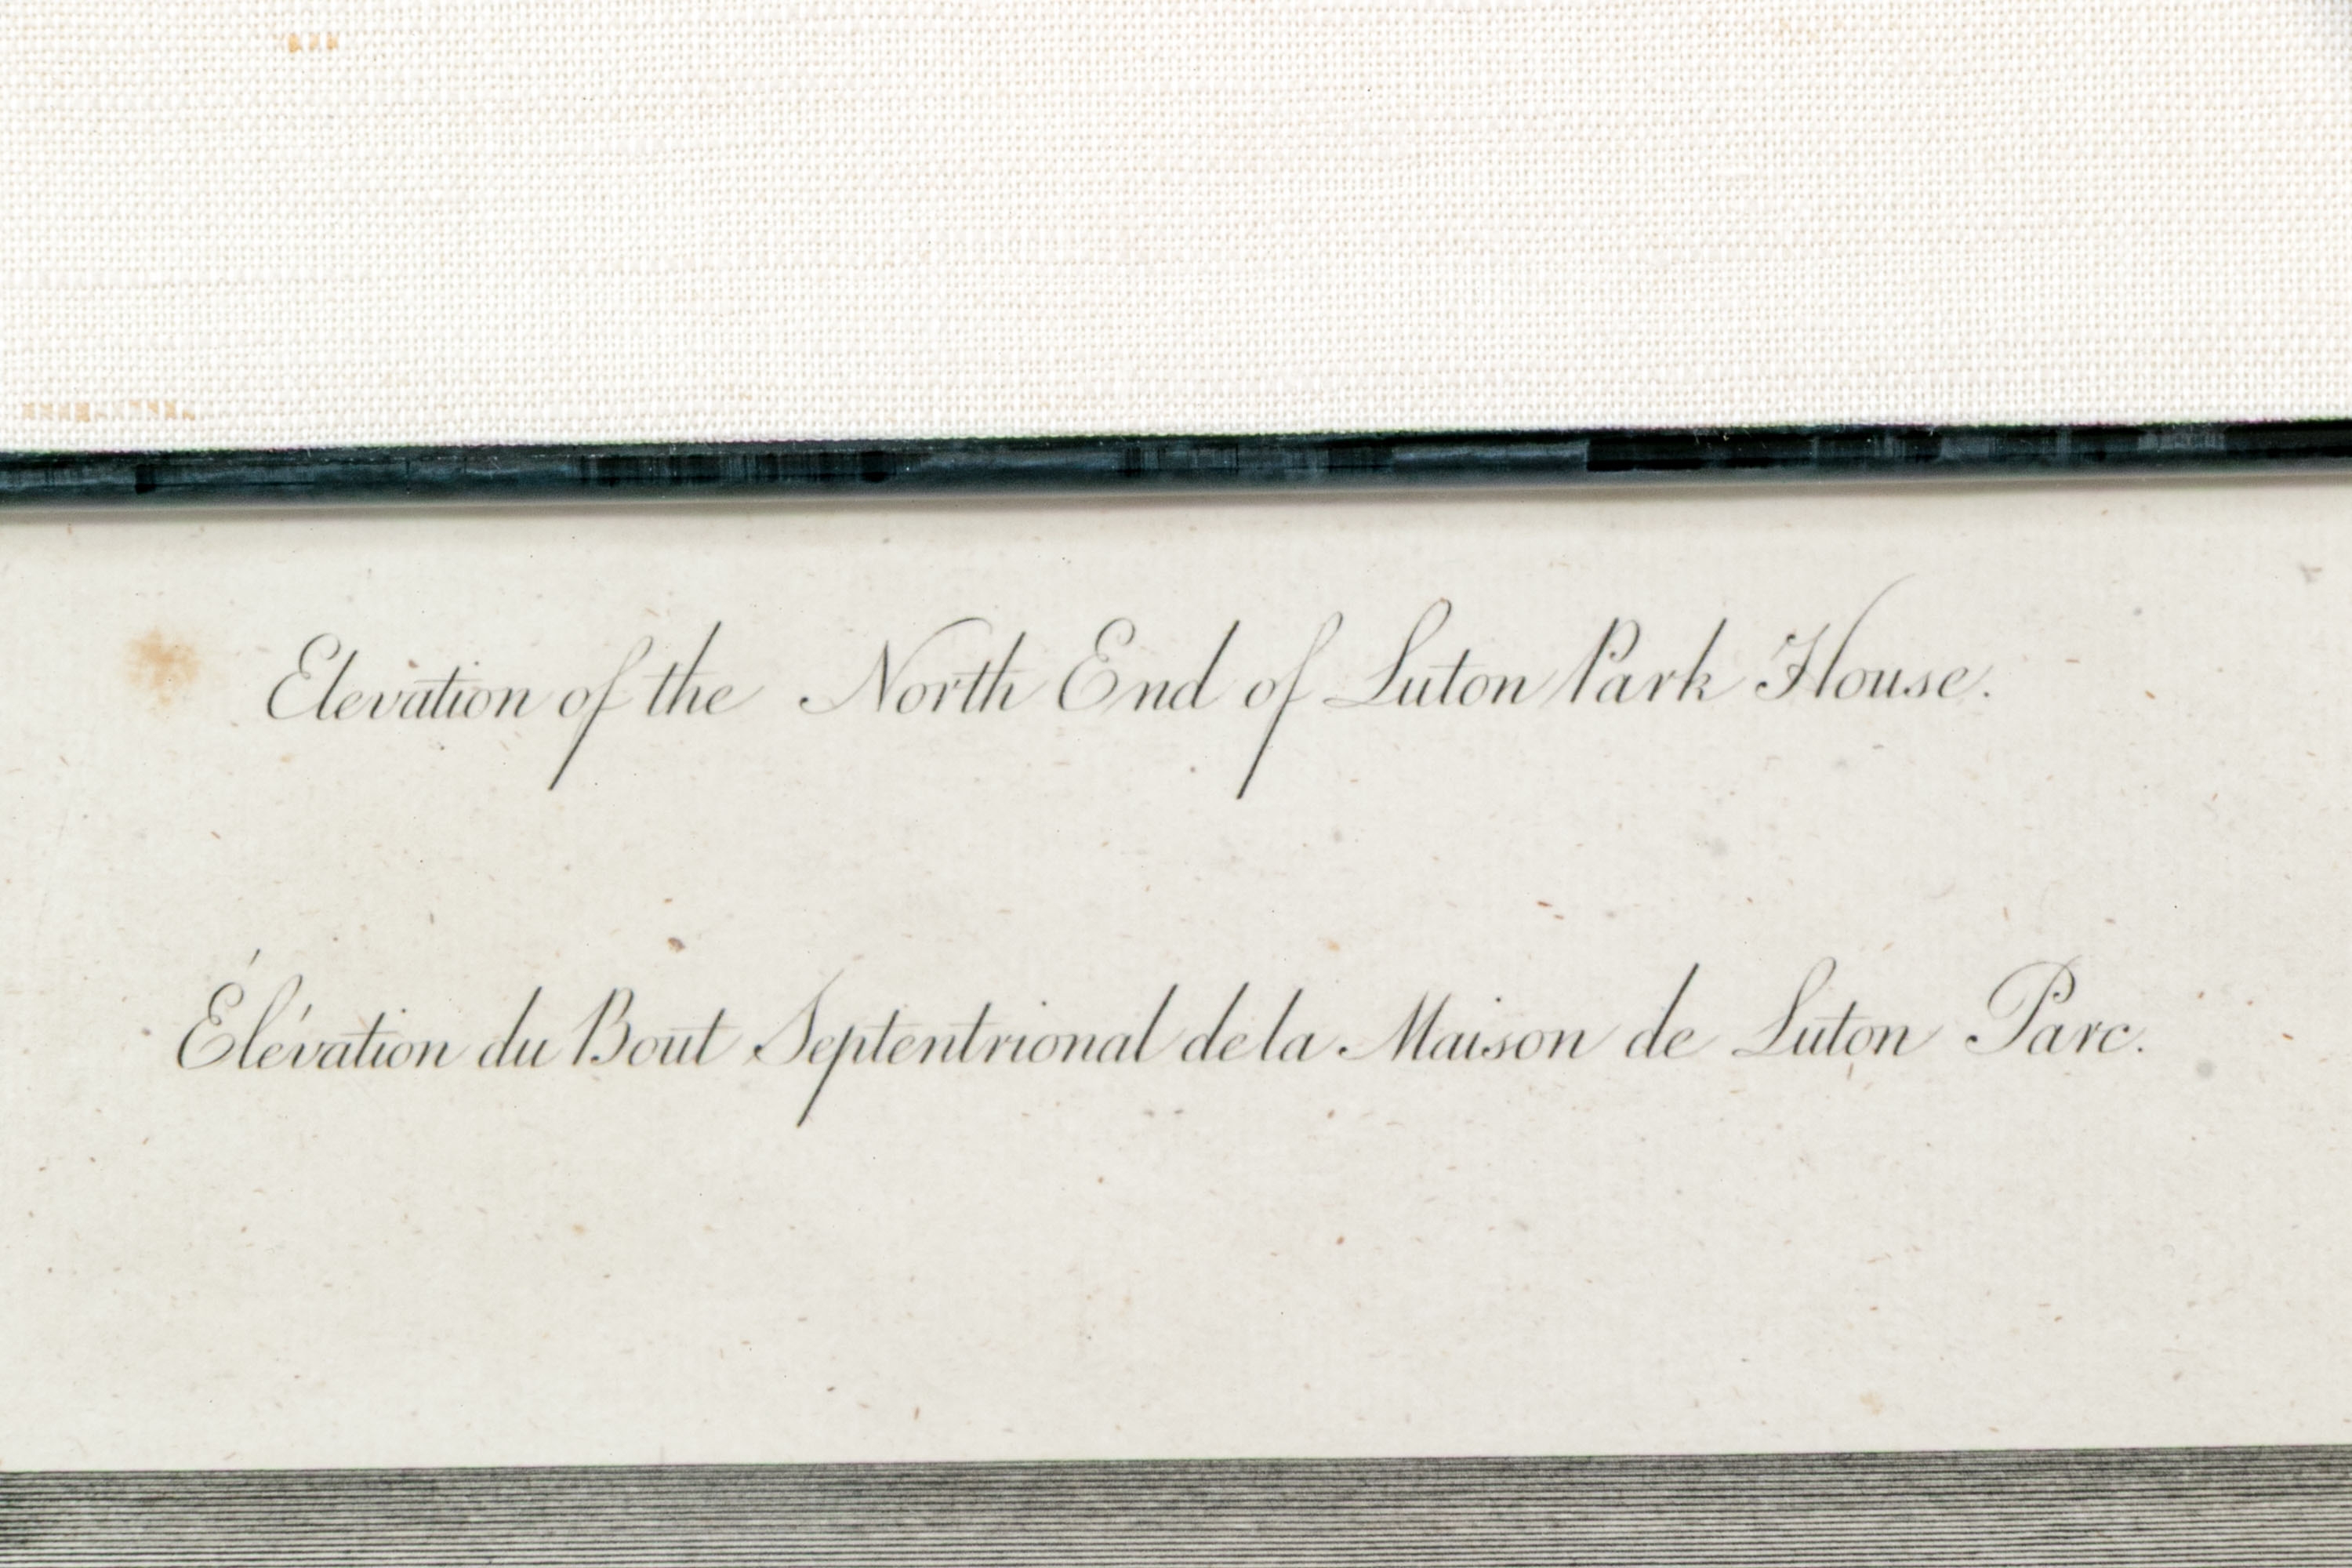 Elevation of the North End of Luton Park House.
Élévation du Bout Septentrional de la Maison de Luton Parc.